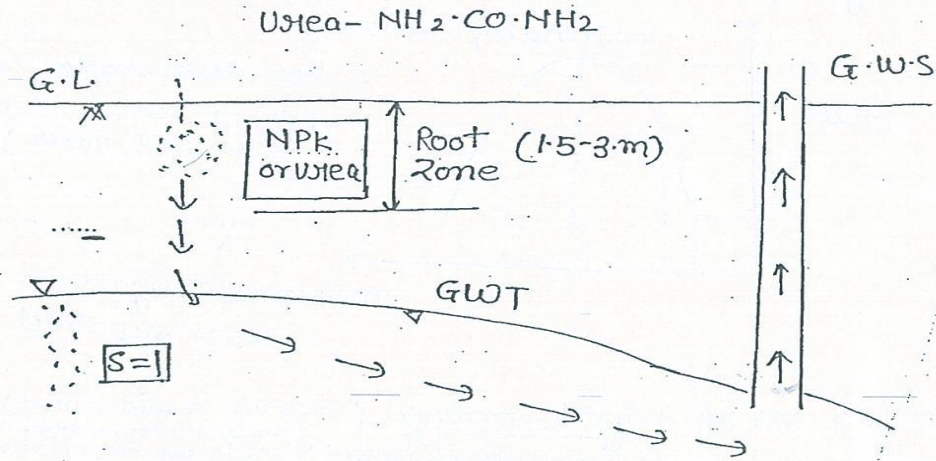 Urea- NH2·CO·NH2
G.L.
G.W.S
NPK
or urea
Root
Zone
(1.5-3.m)
GWT
S=1